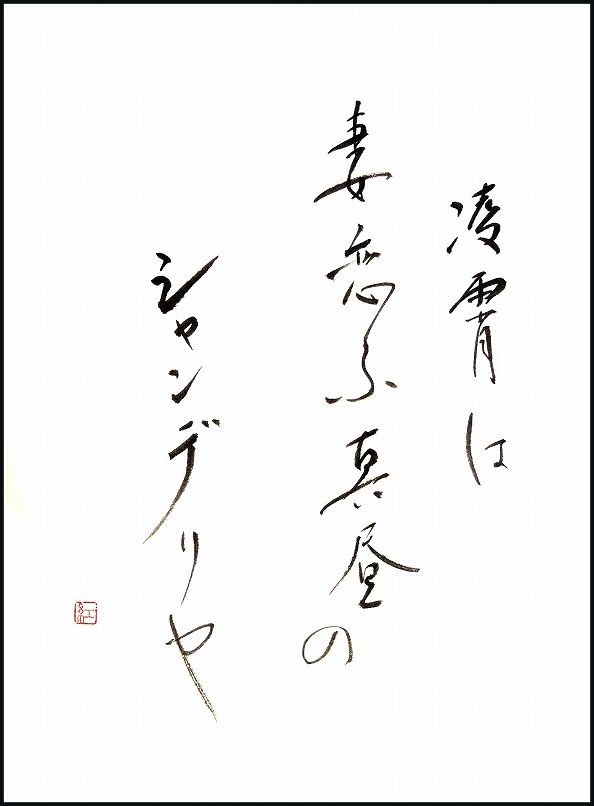 凌霄は
妻恋ふ真昼の
シャンデリヤ